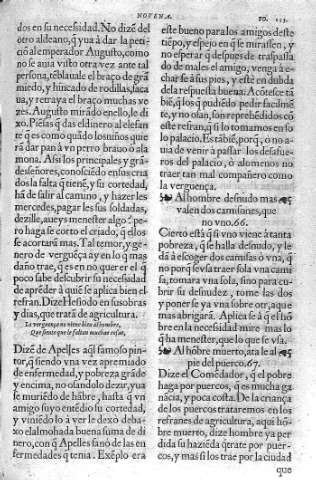 NOVENA.
dos en su necessidad. No dizē del
otro aldeano, q̄ yua à dar la peti-
ciō al emperador Augusto, como
no se auia visto otra vez ante tal
persona, tēblauale el braço de grā
miedo, y hincado de rodillas, saca
ua, y retraya el braço muchas ve
zes. Augusto mirādo enello, le di
xo. Piēsas q̄ das el dinero al elefan
te q̄ es como quādo los niños quie
rā dar pan à vn perro brauo ò ala
mona. Assi los principales y grā-
deseñores, conosciēdo en sus cria
dos la falta q̄ tienē, y su cortedad,
hā de salir al camino, y hazer les
mercedes, pagar les sus soldadas,
dezille, aueys menester algo? pe-
ro haga se corto el criado, q̄ ellos
se acortarā mas. Tal temor, y ge-
nero de verguēça ay en lo q̄ mas
daño trae, q̄ es en no querer el q̄
poco sabe descubrir su necessidad
de aprēder à quiē se aplica bien el
refran. Dize Hesiodo en sus obras
y dias, que trata de agricultura.
La verguença no viene bien al hombre,
Que siente que le faltan muchas cosas,
Dizē de Apelles aq̄l famoso pin-
tor, q̄ siendo vna vez apremiado
de enfermedad, y pobreza grāde
y encima, no osandolo dezir, yua
se muriēdo de hābre, hasta q̄ vn
amigo suyo entēdio su cortedad,
y viniēdo lo à ver le dexò deba-
xo el almohada buena suma de di
nero, con q̄ Apelles sanò de las en
fermedades q̄ tenia. Exēplo era
este bueno para los amigos deste
tiēpo, y espejo en q̄ se mirassen, y
no esperar q̄ despues de traspassa
do de males el amigo, venga à e-
char se à sus pies, y estè en dubda
de la respuesta buena. Acōtesce tā
biē, q̄ los q̄ pudiēdo pedir facilmē
te, y no osan, son reprehēdidos cō
este refran, q̄ si lo tomamos en so
lo palacio. Es tābiē, porq̄, o no a-
uia de venir à passar los desafue-
ros del palacio, ò alomenos no
traer tan mal compañero como
la verguença.
Al hombre desnudo mas
valen dos camisones, que
no vno. 66.
Cierto està q̄ si vno viene à tanta
pobreza, q̄ se halla desnudo, y le
dā à escoger dos camisas ò vna, q̄
no porq̄ se vsa traer sola vna cami
sa, tomara vna sola, sino para cu-
brir su desnudez, tome las dos
y poner se ya vna sobre otr, aque
mas abrigarà. Aplica se à q̄ el hō
bre en la necessidad mire mas lo
q̄ ha menester, que lo que se vsa.
Al hōbre muerto, ata le al
pie del puerco. 67.
Dize el Comēdador, q̄ el pobre
haga por puercos, q̄ es mucha ga
nācia, y poca costa. De la criança
de los puercos trataremos en los
refranes de agricultura, aqui hō-
bre muerto, dize hombre ya per
dida su haziēda q̄ trate por puer-
cos, y mas si los trae por la ciudad
que